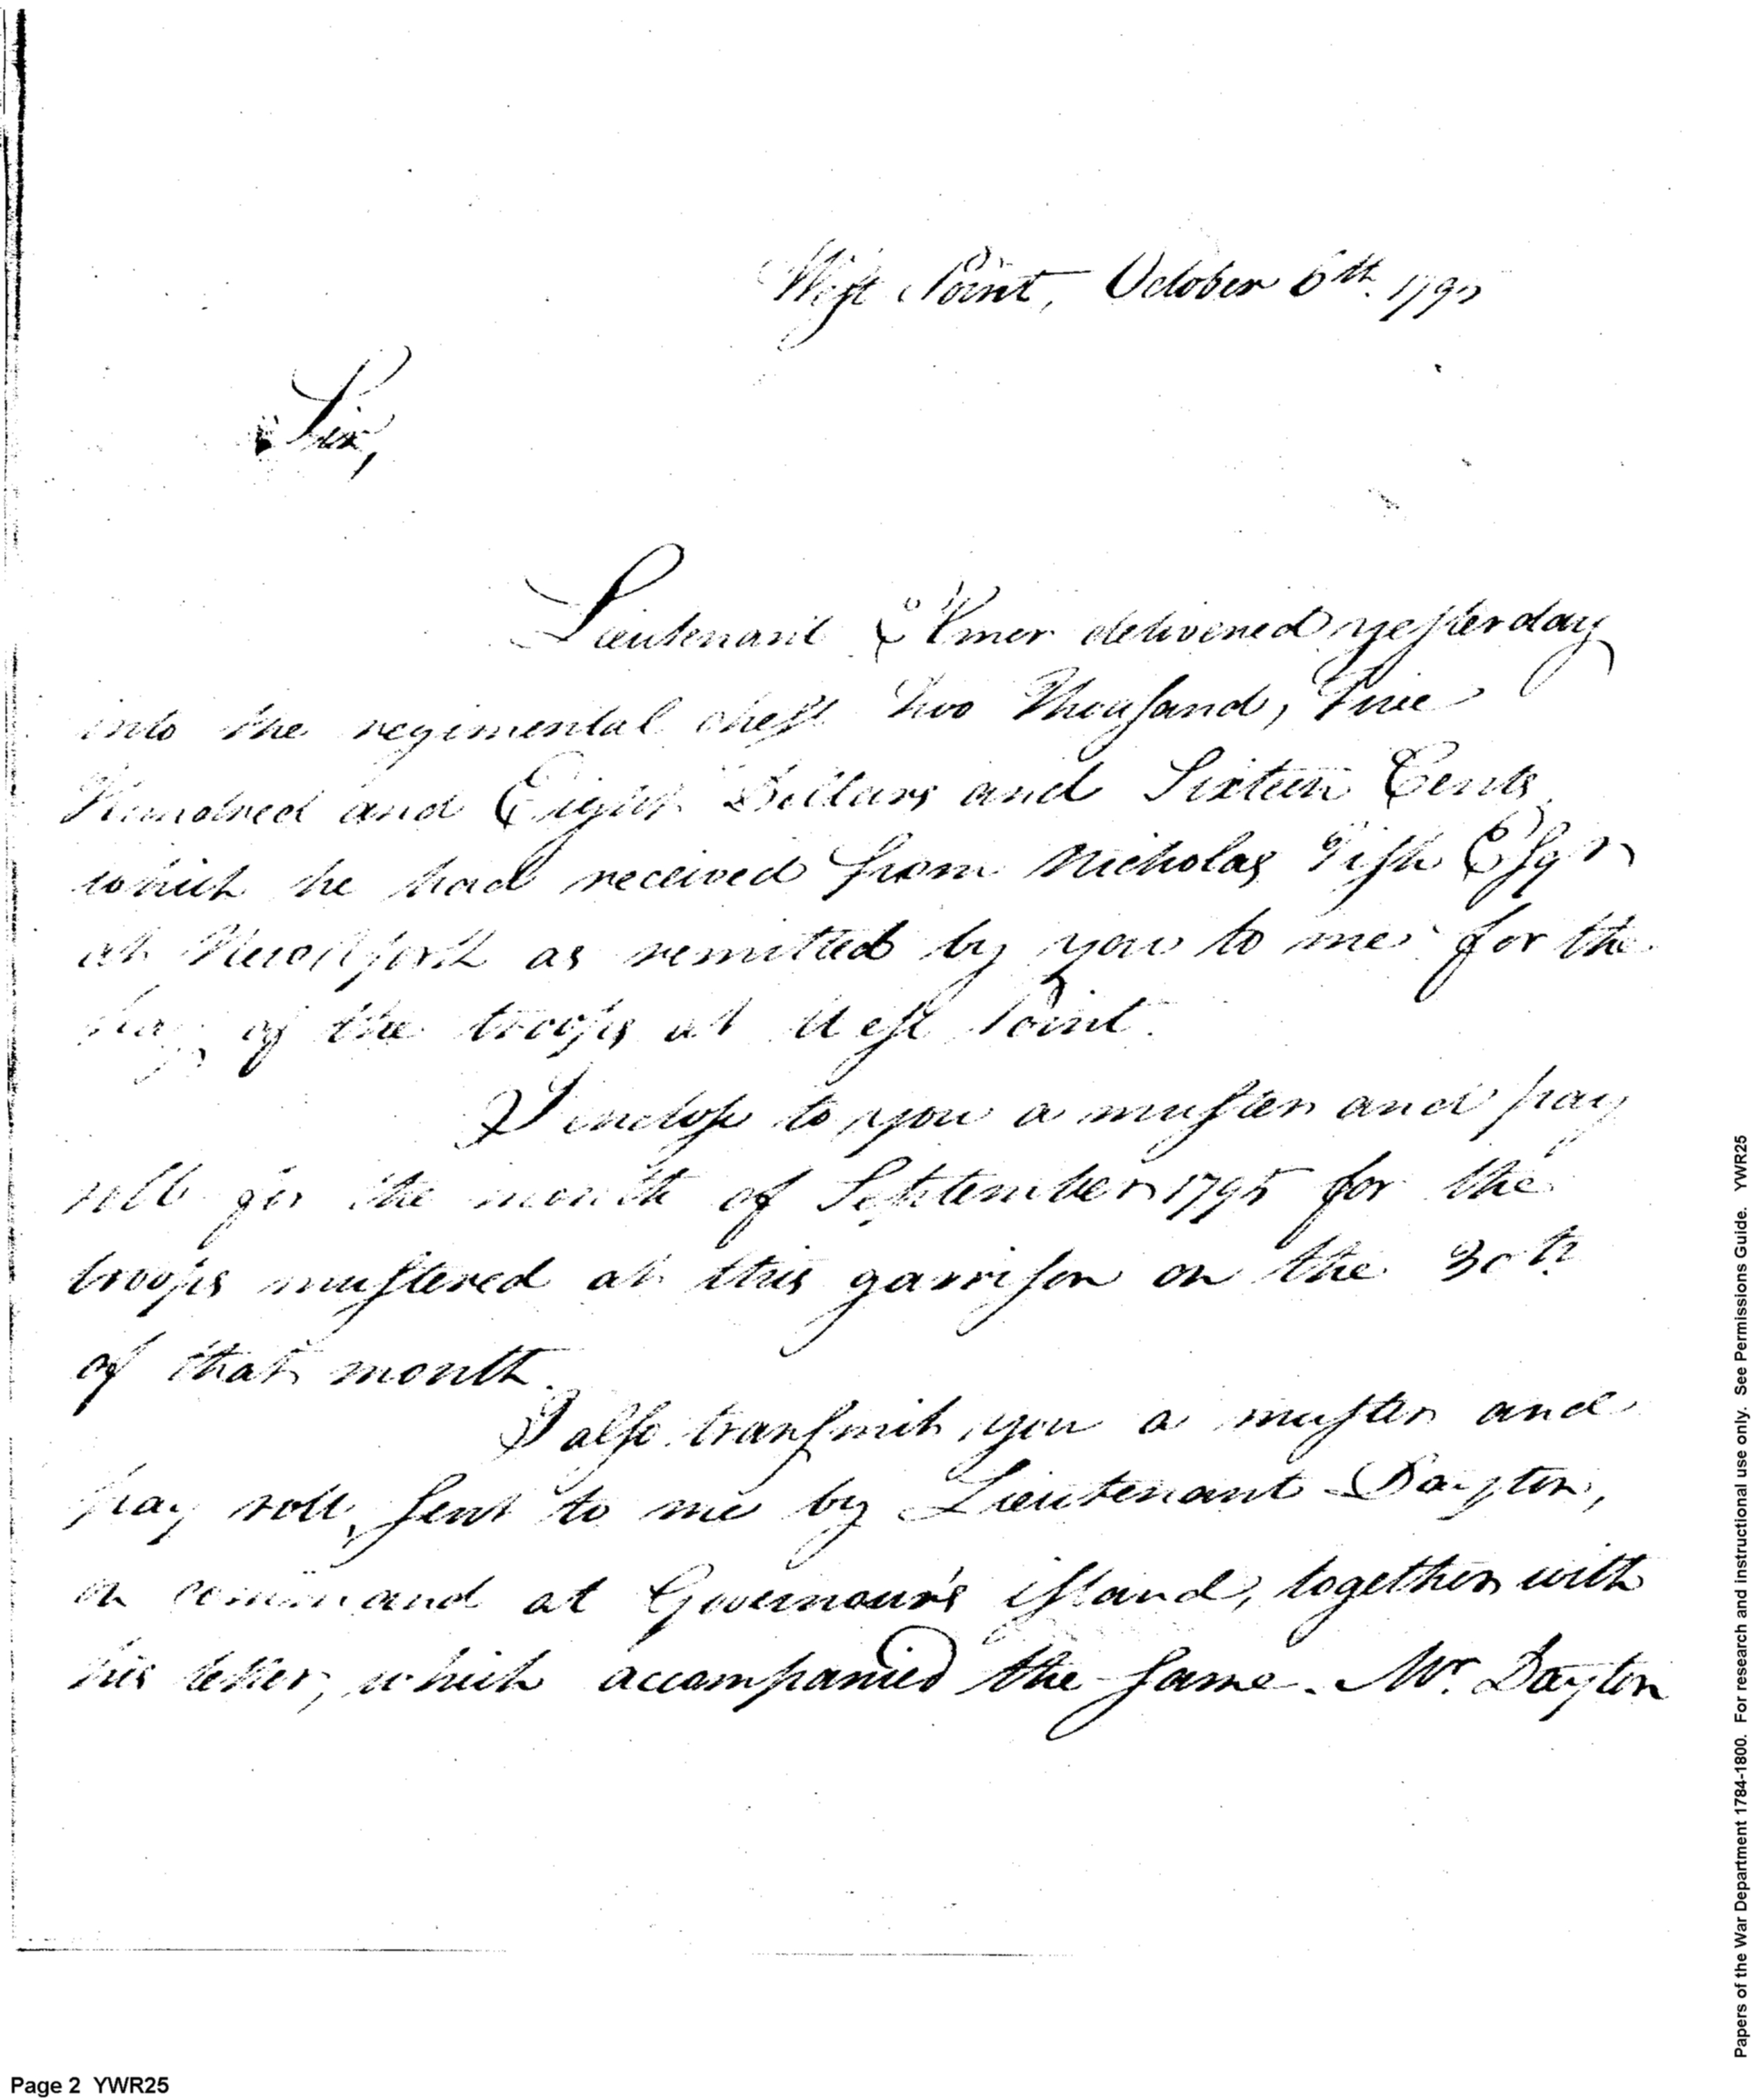 West Point, October 6th. 1795
Sir,
Lieutenant Elmer delivered yesterday
into the regimental chest Two Thousand, Five
Hundred and Eight Dollars and Sixteen Cents
which he had received from Nicholas Fish Esqr
at Newyork as remitted by you to me for the
pay of the troops at West Point.
I inclose to you a muster and pay
roll for the month of September 1795 for the
troops mustered at this garrison on the 30th
of that month.
I also transmit you a muster and
pay roll, sent to me by Lieutenant Dayton,
on command at Governour's island, together with
his letter, which accompanied the same. Mr. Dayton
Page 2 YWR25
Papers of the War Department 1784-1800. For research and instructional use only. See Permissions Guide. YWR25